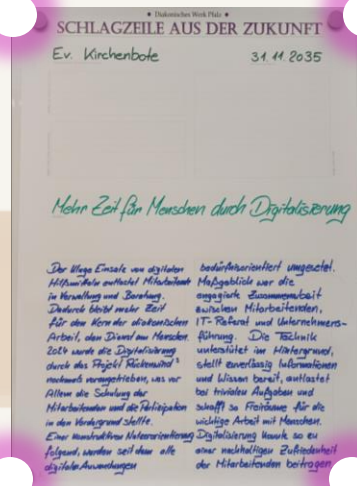 • Diakonisches Werk Pfalz •
SCHLAGZEILE AUS DER ZUKUNFT
Ev. Kirchenbote
31.11.2035
Mehr Zeit für Menschen durch Digitalisierung
Der kluge Einsatz von digitalen
Hilfsmitteln entlastet Mitarbeitende
in Verwaltung und Beratung.
Dadurch bleibt mehr Zeit
für den Kern der diakonischen
Arbeit, den Dienst am Menschen.
2024 wurde die Digitalisierung
durch das Projekt Rückenwind³
nochmals vorangetrieben, was vor
Allem die Schulung der
Mitarbeitenden und die Partizipation
in den Vordergrund stellte.
Einer konstruktiven Nutzerorientierung
folgend, wurden seit dem alle
digitalen Anwendungen
bedürfnisorientiert umgesetzt.
Maßgeblich war die
engagierte Zusammenarbeit
zwischen Mitarbeitenden,
IT-Referat und Unternehmens-
führung. Die Technik
unterstützt im Hintergrund,
stellt zuverlässig Informationen
und Wissen bereit, entlastet
bei trivialen Aufgaben und
schafft so Freiräume für die
wichtige Arbeit mit Menschen.
Digitalisierung konnte so zu
einer nachhaltigen Zufriedenheit
der Mitarbeitenden beitragen